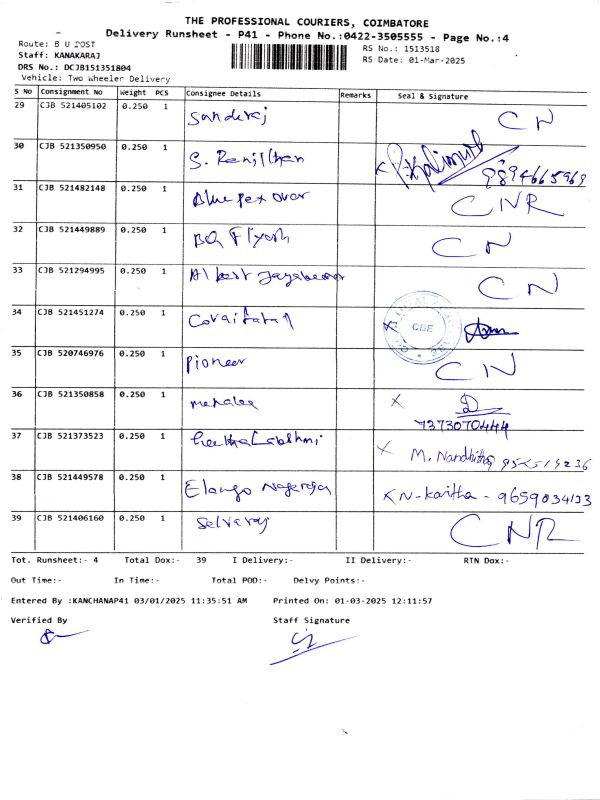 THE PROFESSIONAL COURIERS, COIMBATORE
Delivery Runsheet - P41 - Phone No.:0422-3505555 - Page No.:4
Route: B U POST
RS No.: 1513518
Staff: KANAKARAJ
RS Date: 01-Mar-2025
DRS No.: DCJB151351804
Vehicle: Two Wheeler Delivery
S No Consignment No Weight PCS Consignee Details Remarks Seal & Signature
29 CJB 521405102 0.250 1 CN
30 CJB 521350950 0.250 1 S. 9894665969
31 CJB 521482148 0.250 1 CNR
32 CJB 521449889 0.250 1 CN
33 CJB 521294995 0.250 1 CN
34 CJB 521451274 0.250 1 CBE
35 CJB 520746976 0.250 1 Pioneer CN
36 CJB 521350858 0.250 1 mekalee X D
7373070444
37 CJB 521373523 0.250 1 X M. Nandhitha
38 CJB 521449578 0.250 1 Elango Nagaraja
39 CJB 521406160 0.250 1 Selvaraj CNR
Tot. Runsheet:- 4 Total Dox:- 39 I Delivery:- II Delivery:- RTN Dox:-
Out Time:- In Time:- Total POD:- Delvy Points:-
Entered By :KANCHANAP41 03/01/2025 11:35:51 AM Printed On: 01-03-2025 12:11:57
Verified By Staff Signature